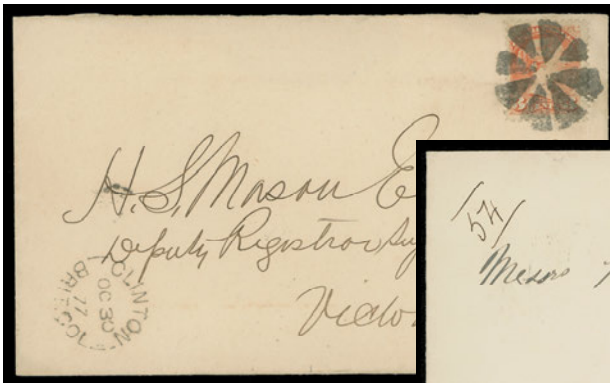 H. S. Mason E
Deputy Registrar Sup
Victo
CLINTON
OC 30
77
BRIT. COL.
54
Messrs